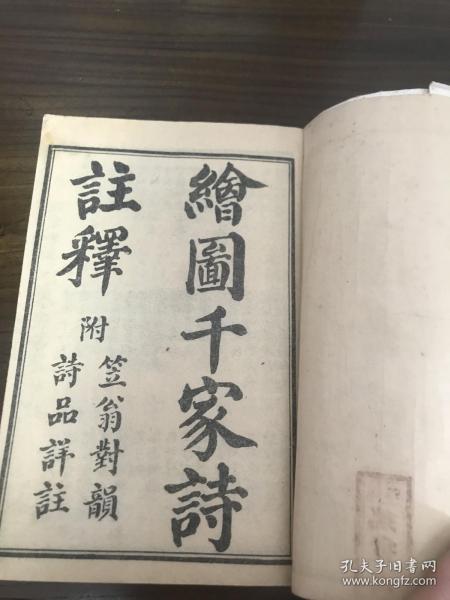 繪圖千家詩
註釋
附
笠翁對韻
詩品詳註
孔夫子旧书网
www.kongfz.com